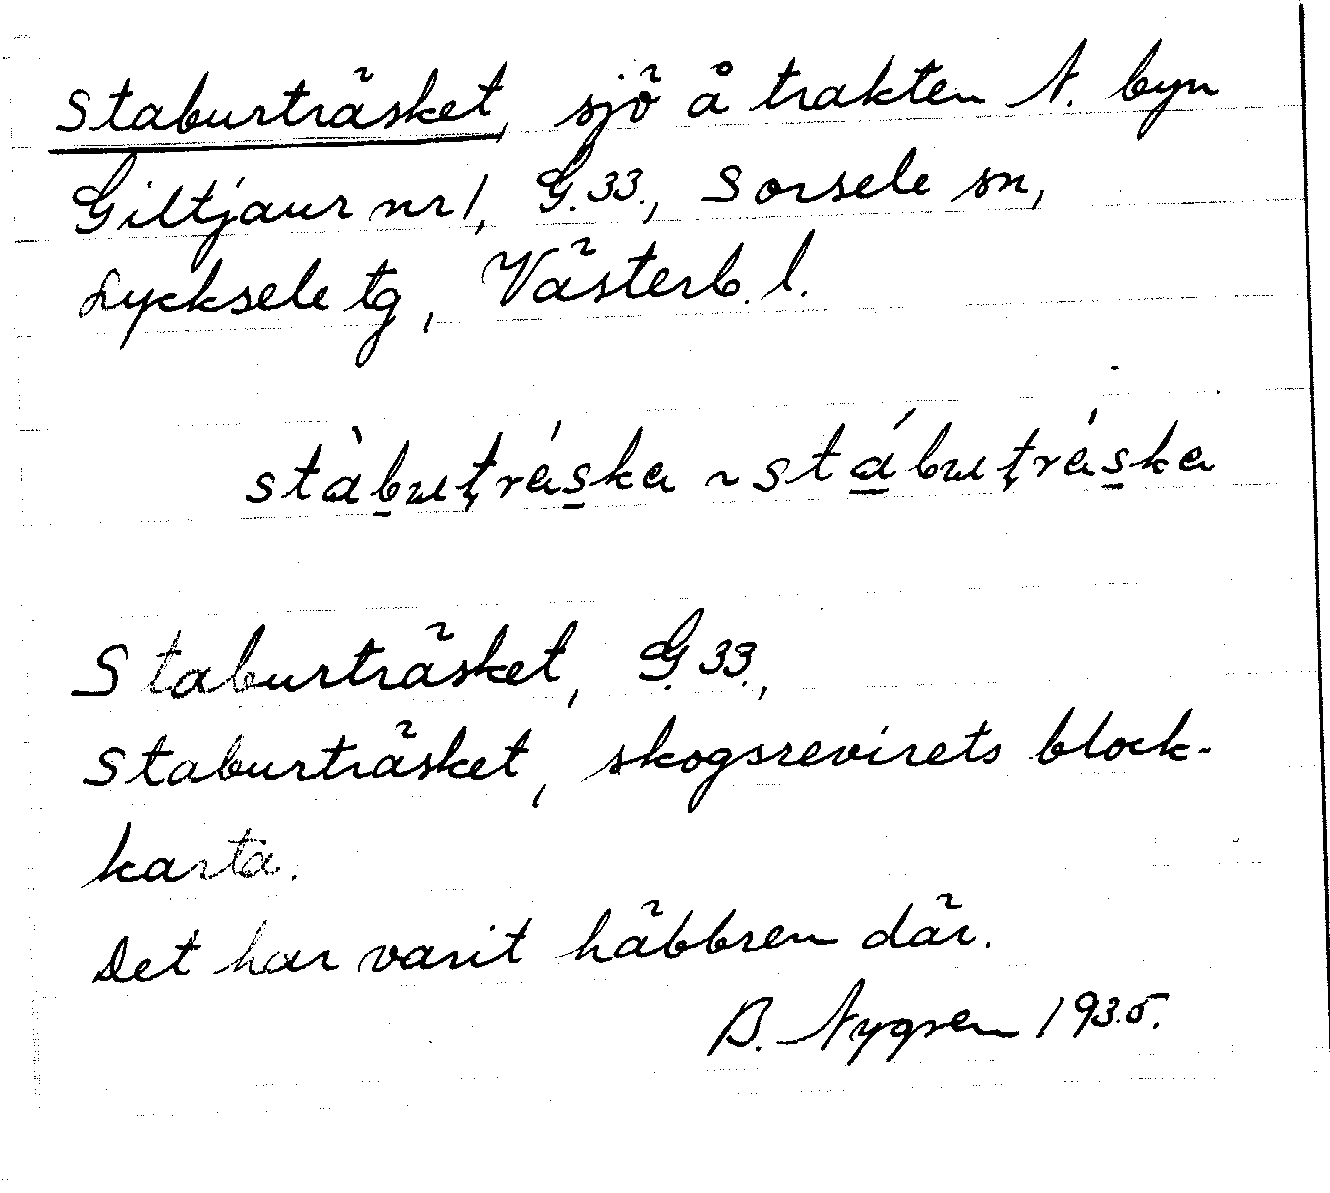 Staburträsket, sjö å trakten N. byn
Giltjaur nr 1, G. 33., Sorsele sn,
Lycksele tg, Västerb. l.
stàbuʈrás̱ka ~ stábuʈrás̱ka
Staburträsket, G. 33.,
Staburträsket, skogsrevirets block-
karta.
Det har varit häbbren där.
B. Nygren 1935.